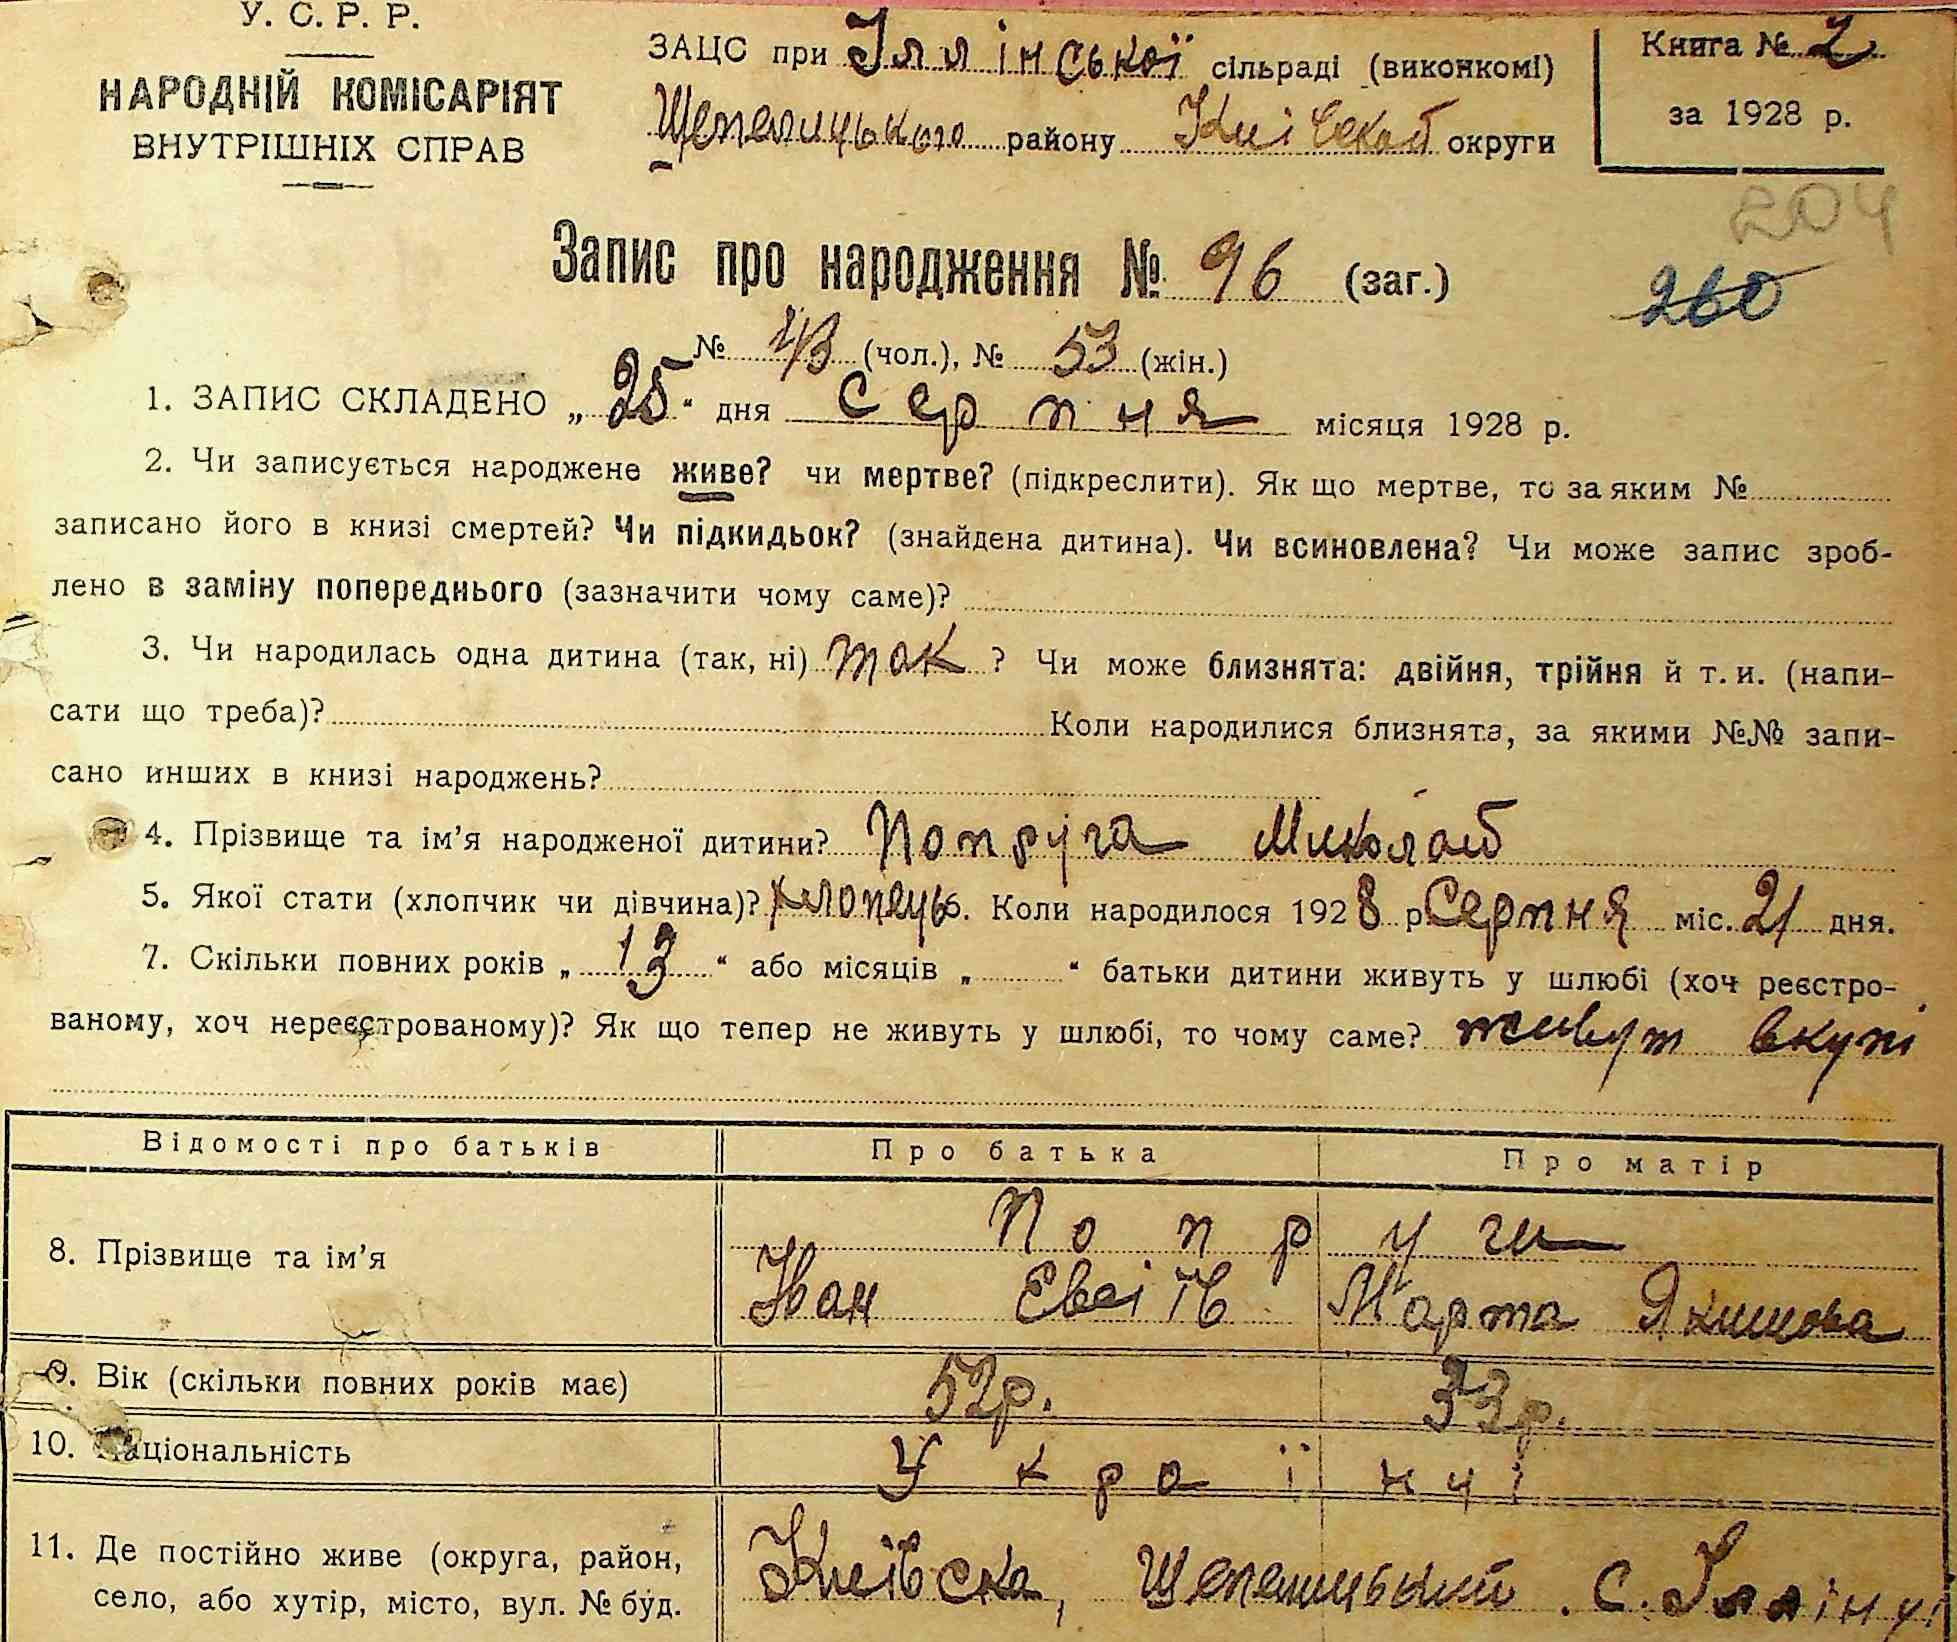 У. С. Р. Р.
НАРОДНІЙ КОМІСАРІЯТ
ВНУТРІШНІХ СПРАВ
ЗАЦС при Іллінської сільраді (виконкомі)
Щепелицького району Київскай округи
Книга № 2
за 1928 р.
204
260
Запис про народження № 96 (заг.)
№ 43 (чол.), № 53 (жін.)
1. ЗАПИС СКЛАДЕНО „ 25 “ дня Серпня місяця 1928 р.
2. Чи записується народжене живе? чи мертве? (підкреслити). Як що мертве, то за яким №
записано його в книзі смертей? Чи підкидьок? (знайдена дитина). Чи всиновлена? Чи може запис зроб-
лено в заміну попереднього (зазначити чому саме)?
3. Чи народилась одна дитина (так, ні) так ? Чи може близнята: двійня, трійня й т. и. (напи-
сати що треба)? Коли народилися близнята, за якими №№ запи-
сано инших в книзі народжень?
4. Прізвище та ім’я народженої дитини? Попруга Миколай
5. Якої стати (хлопчик чи дівчина)? хлопець 6. Коли народилося 1928 р Серпня міс. 21 дня.
7. Скільки повних років „ 13 “ або місяців „ “ батьки дитини живуть у шлюбі (хоч реєстро-
ваному, хоч нереєстрованому)? Як що тепер не живуть у шлюбі, то чому саме? живут вкупі
Відомості про батьків Про батька Про матір
8. Прізвище та ім’я Попруги
Іван Марта Якимова
9. Вік (скільки повних років має) 52р. 33р.
10. Національність Українці
11. Де постійно живе (округа, район, Київска, Щепелицький с. Іллінці
село, або хутір, місто, вул. № буд.